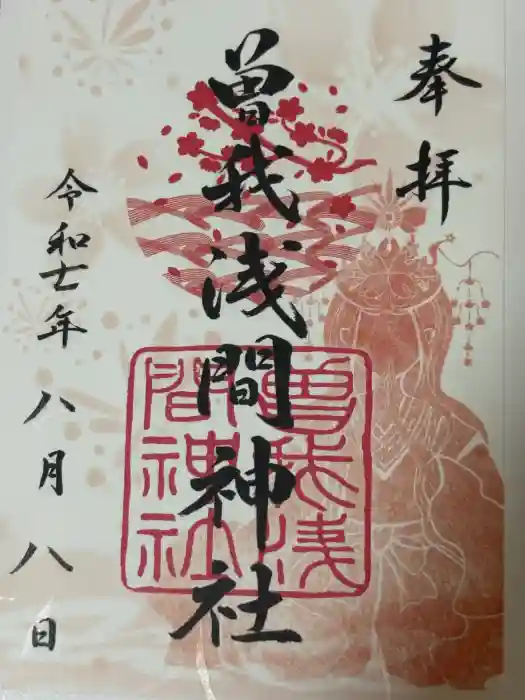 奉拝
曽我浅間神社
曽我浅
間神社
令和七年
八月八日